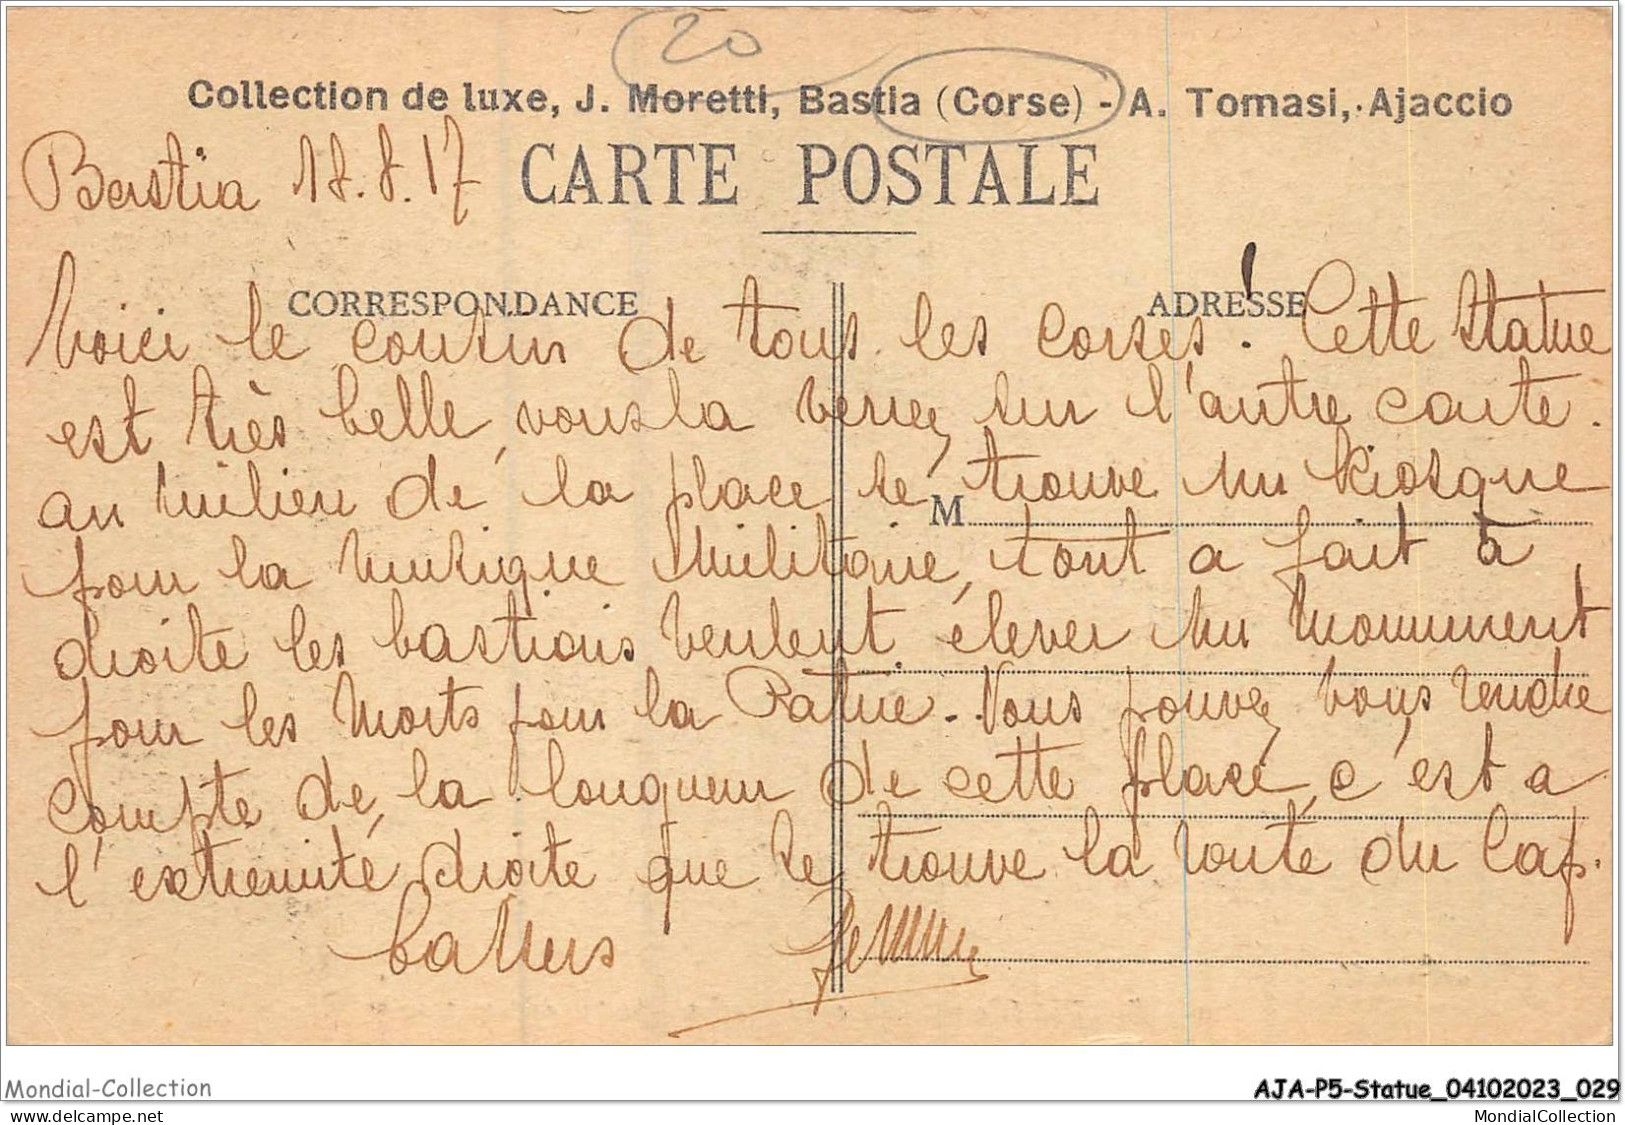 20
Collection de luxe, J. Moretti, Bastia (Corse) - A. Tomasi, Ajaccio
Bastia 18.8.17
CARTE POSTALE
CORRESPONDANCE
ADRESSE
Voici le cousin de tous les Corses. Cette statue
est très belle, vous la verrez sur l'autre carte.
au milieu de la place se trouve un kiosque
M
pour la musique militaire, tout a fait à
droite les bastiais veulent élever un monument
pour les morts pour la Patrie. Vous pouvez vous rendre
compte de la longueur de cette place, c'est a
l'extremité droite que se trouve la route du Cap.
baisers
Mondial-Collection
AJA-P5-Statue_04102023_029
www.delcampe.net
MondialCollection